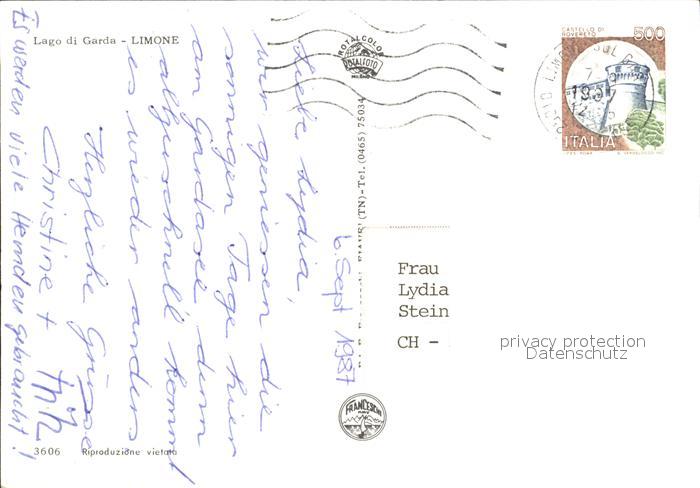 Lago di Garda - LIMONE
ROTALCOLOR
ROTALFOTO
MILANO
CASTELLO DI
ROVERETO
500
ITALIA
Liebe Lydia,
wir geniessen die
sonnigen Tage hier
am Gardasee denn
allzuschnell kommt
es wieder anders
Herzliche Grüsse
Christine +
Es werden viele Hemden gebraucht!
6. Sept 1987
(TN) - Tel. (0465) 75034
Frau
Lydia
Stein
CH -
privacy protection
Datenschutz
FRANCESCHI
3606 Riproduzione vietata